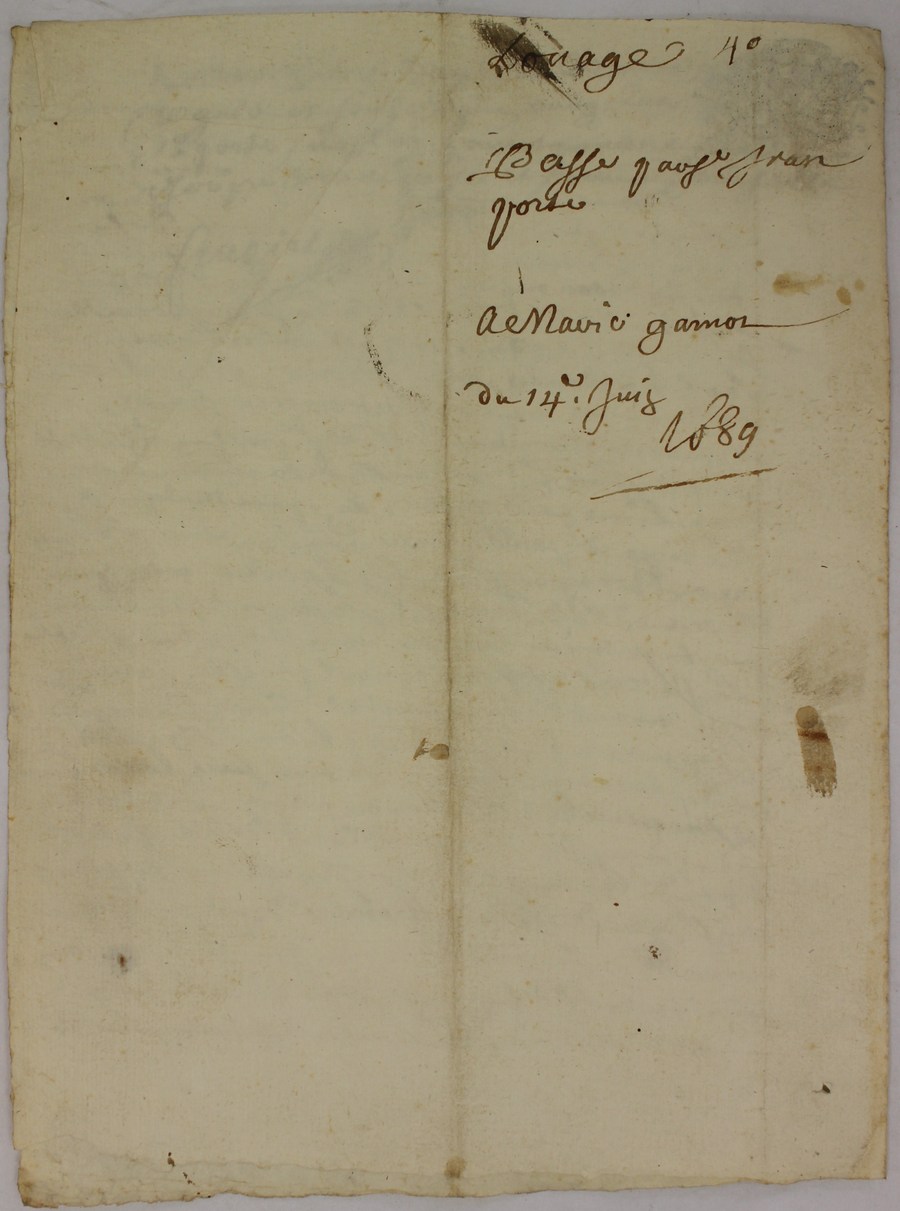 Louage 4°
Passe par Jean
porte
A Navic gamon
du 14e. Juin
1689